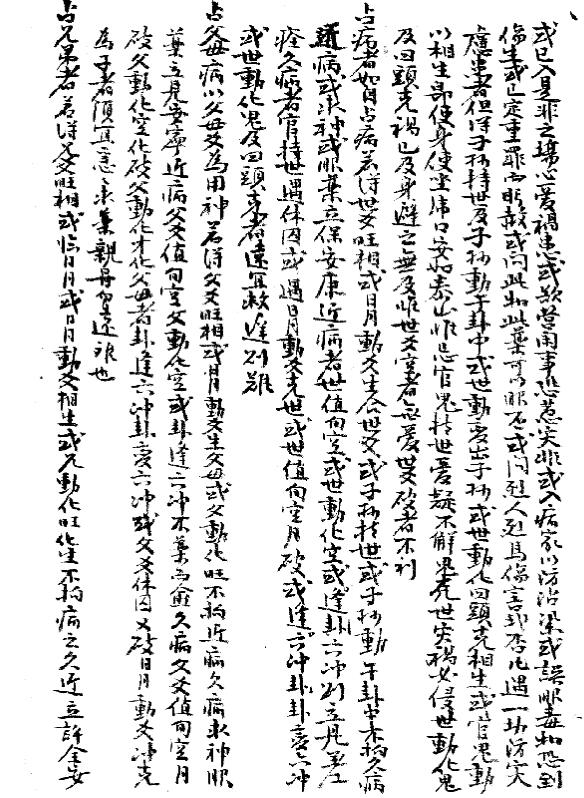 或已入是非之場心憂禍患或欲營用事恐惹災非或入病家以防沾染或誤服毒物恐到
傷生或已定重罪而盼赦或問此物此藥可服否或問烈人烈馬傷害我否凡遇一切防災
慮患者但得子孫持世及子孫動于卦中或世動變出子孫或世動化回頭克相生或官鬼動
以相生即使身使坐虎口安如泰山惟忌官鬼持世憂疑不解鬼克世災禍必侵世動化鬼
及回頭克禍已及身避之無及惟世爻空者無憂世破者不利
占病者如自占病若得世爻旺相或日月動爻生合世爻或子孫持世或子孫動于卦中不拘久病
近病或求神或服藥立保安康近病者世值旬空或世動化空或逢卦六沖則立見安
痊久病者官持世遇休囚或遇日月動爻克世或世值旬空月破或逢六沖卦卦變六沖
或世動化鬼及回頭克者速宜救遲則難
占父母病以父母爻為用神若得父爻旺相或日月動爻生父母或父動化旺不拘近病久病求神服
藥立見安寧近病父爻值旬空父動化空或卦逢六沖不藥而愈久病父爻值旬空月
破父動化空化破父動化才化父母者卦逢六沖卦變六沖或父爻休囚又被日月動爻沖克
為子者須宜急求藥親身勿遠離也
占兄弟者若得兄爻旺相或臨日月或日月動爻相生或兄動化旺化生不拘病之久近立許全安